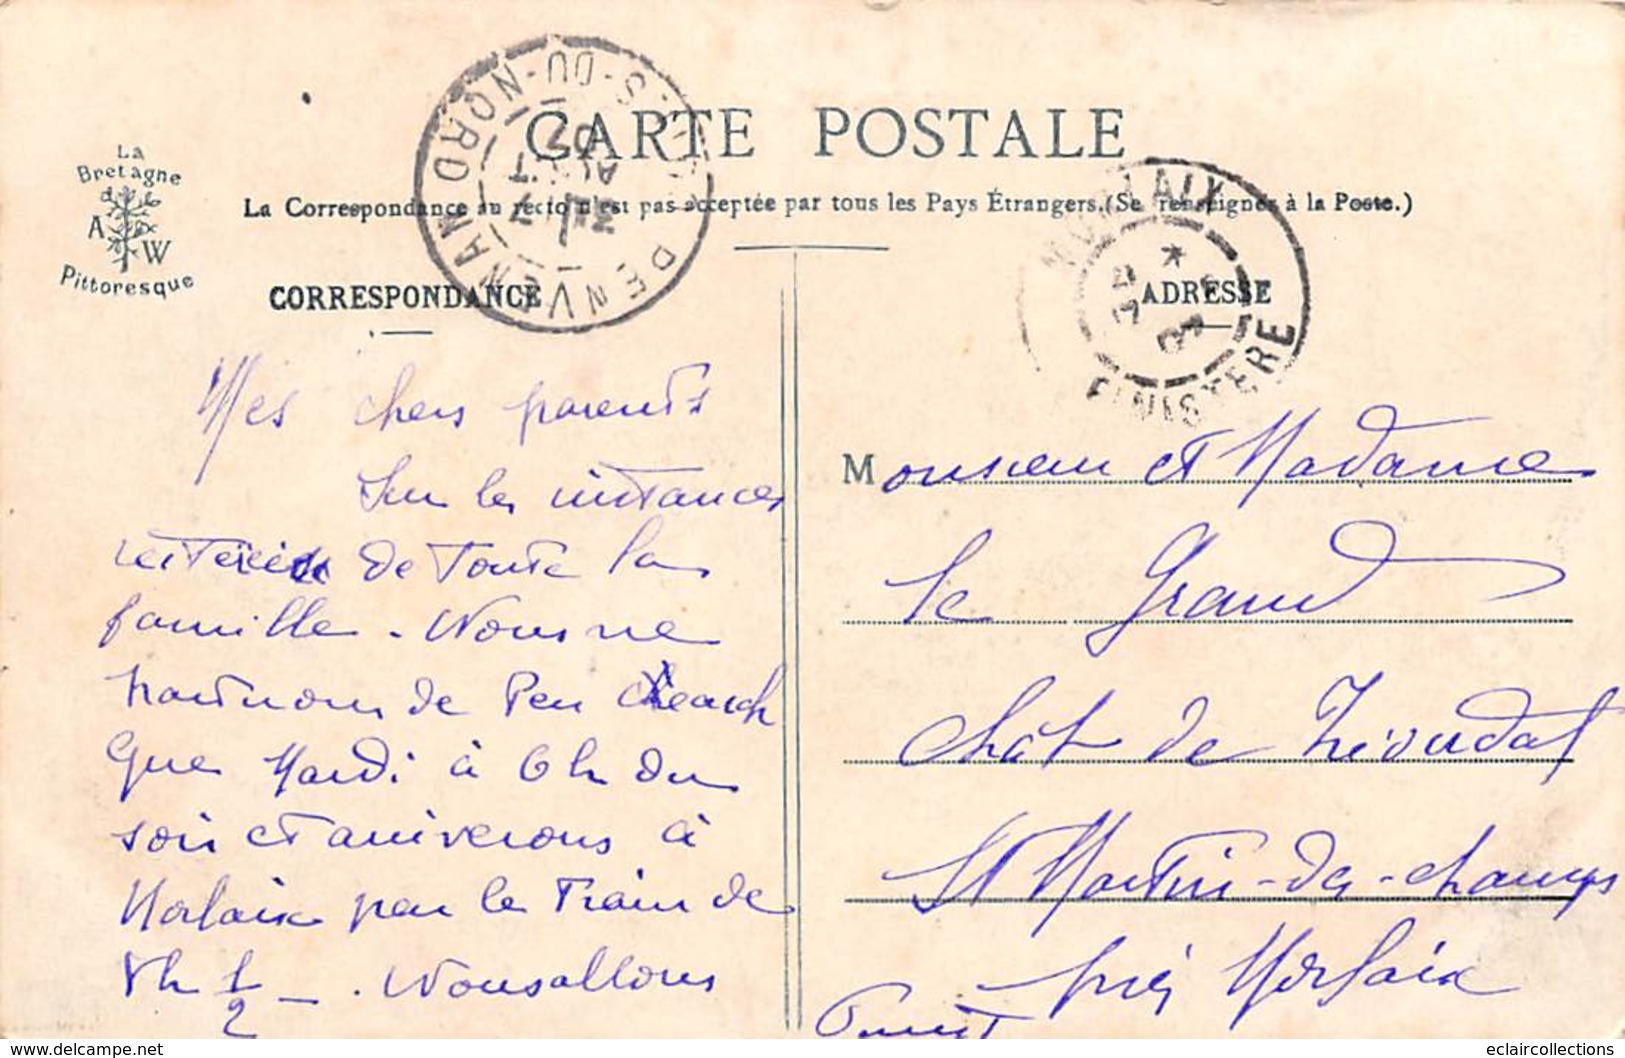 CARTE POSTALE
La Bretagne
A W
Pittoresque
La Correspondance au recto n'est pas acceptée par tous les Pays Étrangers. (Se renseigner à la Poste.)
PENVENAN
CÔTES-DU-NORD
31 AOUT 07
MORLAIX
FINISTERE
CORRESPONDANCE
Mes chers parents
Sur les instances
réitérées de toute la
famille. Nous ne
partirons de Pen
que Mardi à 6 h du
soir et arriverons à
Morlaix par le train de
8h 1/2 _. Nous allons
ADRESSE
Monsieur et Madame
Le Grand
Chât de
St Martin-des-champs
près Morlaix
eclaircollections